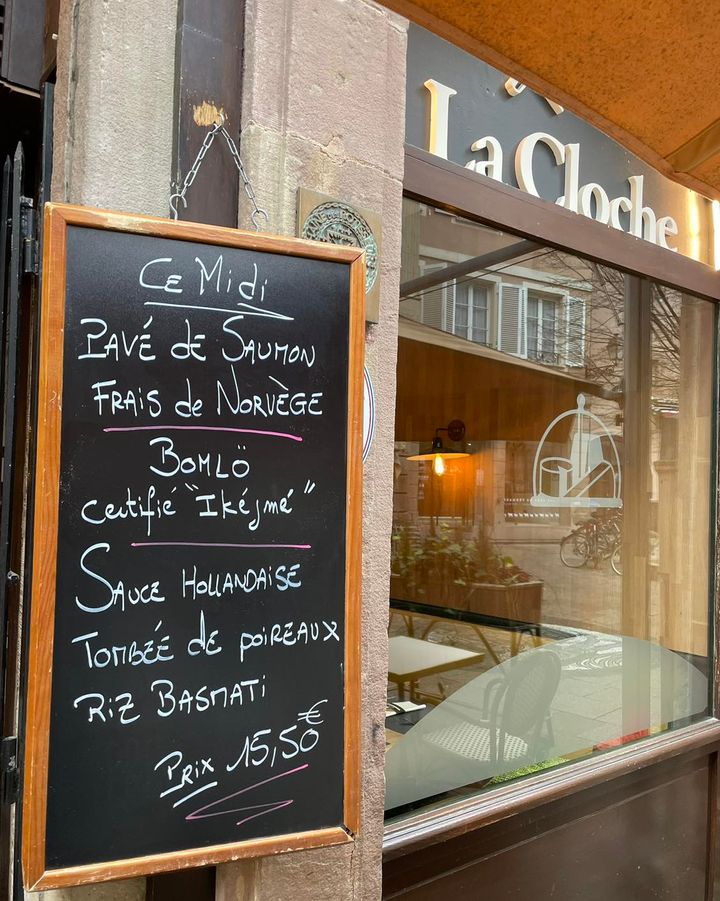 Ce Midi
Pavé de Saumon
Frais de Norvège
Bomlö
certifié "Ikéjmé"
Sauce Hollandaise
Tombéé de poireaux
Riz Basmati
Prix 15,50€
La Cloche